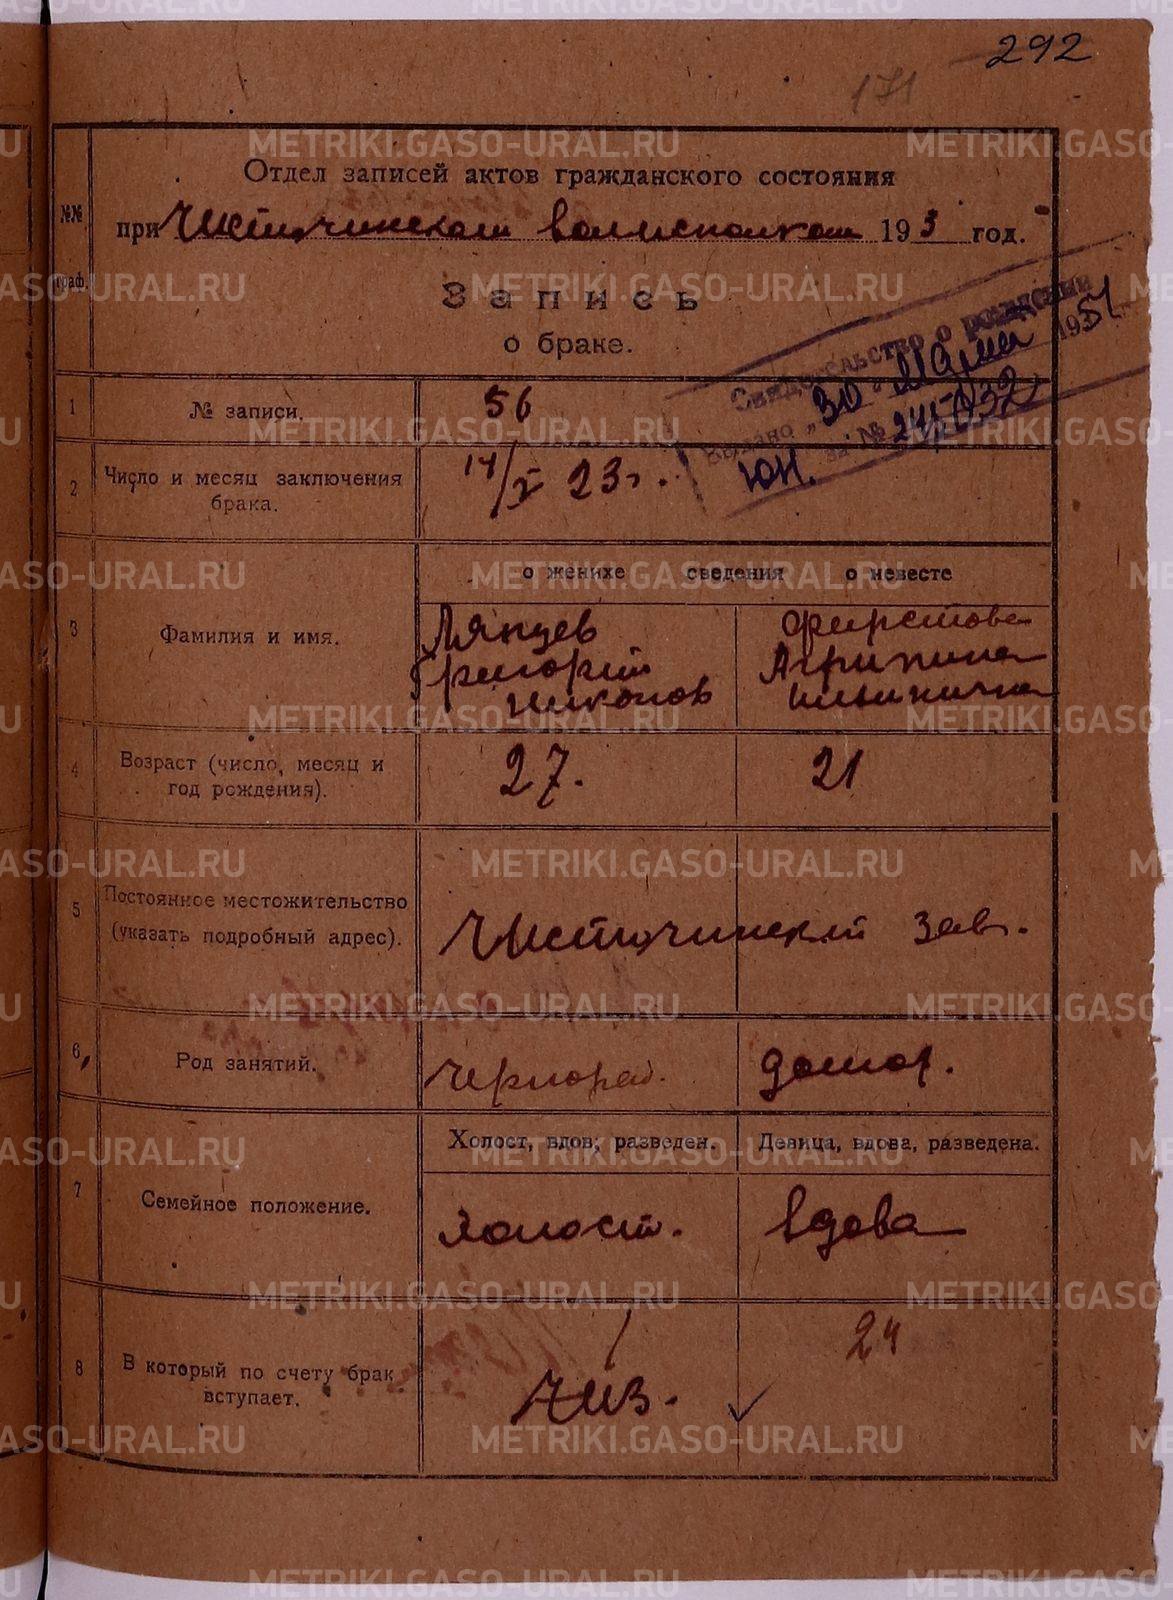 292
171
№№ граф.
Отдел записей актов гражданского состояния
при волисполком 193 год.
Запись
о браке.
Свидетельство о рождении
Выдано „30" мая 1951
за № 245032
ЮН.
1 № записи. 56
2 Число и месяц заключения брака. 14/X 23г.
о женихе сведения о невесте
3 Фамилия и имя.
Ляпцев
Григорий
Никонов
Фирстова
Агрипина
Ильинична
4 Возраст (число, месяц и год рождения). 27. 21
5 Постоянное местожительство (указать подробный адрес). зав.
6 Род занятий. Чернораб. домох.
Холост, вдов, разведен. Девица, вдова, разведена.
7 Семейное положение. Холост. вдова
8 В который по счету брак вступает. 1 2й
METRIKI.GASO-URAL.RU